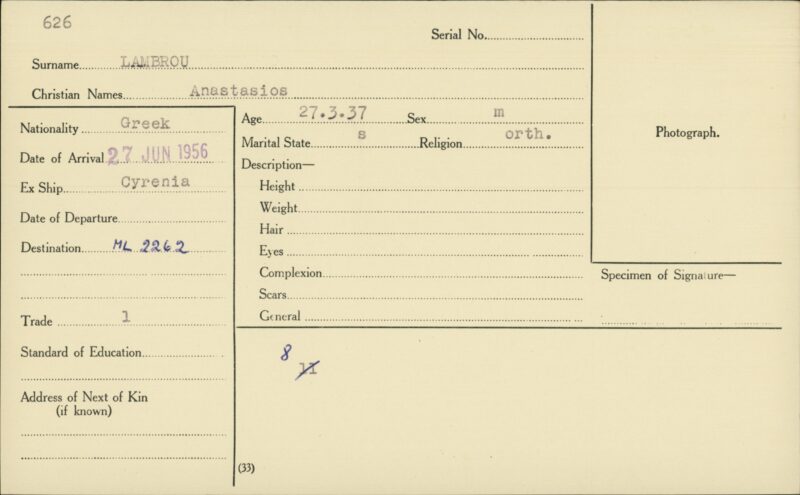 626
Serial No.
Surname LAMBROU
Christian Names Anastasios
Nationality Greek
Date of Arrival 27 JUN 1956
Ex Ship Cyrenia
Date of Departure
Destination ML 2262
Trade 1
Standard of Education
Address of Next of Kin
(if known)
Age 27.3.37 Sex m
Marital State s Religion orth.
Description—
Height
Weight
Hair
Eyes
Complexion
Scars
General
8
11
(33)
Photograph.
Specimen of Signature—